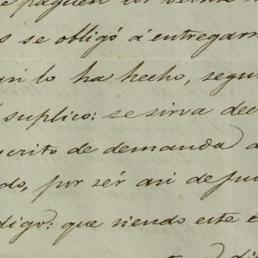 se obligó á entregarm
lo ha hecho, segu
suplico: se sirva dec
crito de demanda a
do, por sér asi de jus
digo: que siendo este